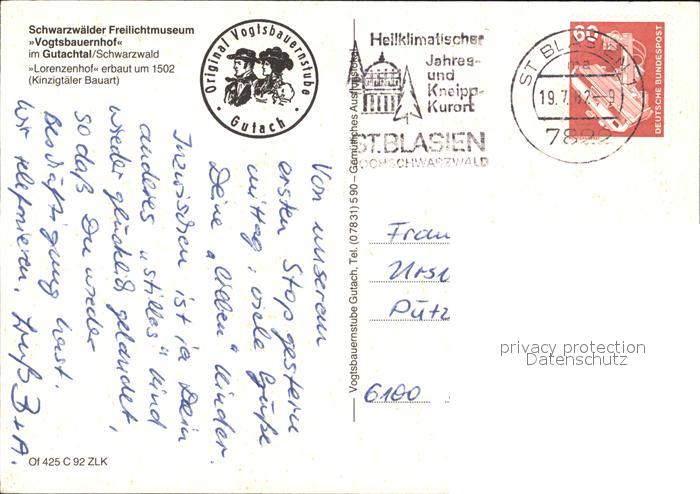 Schwarzwälder Freilichtmuseum
»Vogtsbauernhof«
im Gutachtal/Schwarzwald
»Lorenzenhof« erbaut um 1502
(Kinzigtäler Bauart)
Original Vogtsbauernstube
· Gutach ·
Heilklimatischer
Jahres-
und
Kneipp-
Kurort
ST.BLASIEN
HOCHSCHWARZWALD
ST BLASIEN
ma
19.7.82-9
7822
60
DEUTSCHE BUNDESPOST
Von unserem
ersten Stop gestern
mittag, viele Grüße
Deine "lieben" Kinder.
Inzwischen ist ja Dein
anderes "stilles" Kind
wieder glücklich gelandet,
sodaß Du wieder
Beschäftigung hast.
Wir telefonieren. Gruß B+A.
Vogtsbauernstube Gutach, Tel. (0 78 31) 5 90 – Gemütliches Ausflugslokal
Frau
Ursu
Pütz
6100
privacy protection
Datenschutz
Of 425 C 92 ZLK